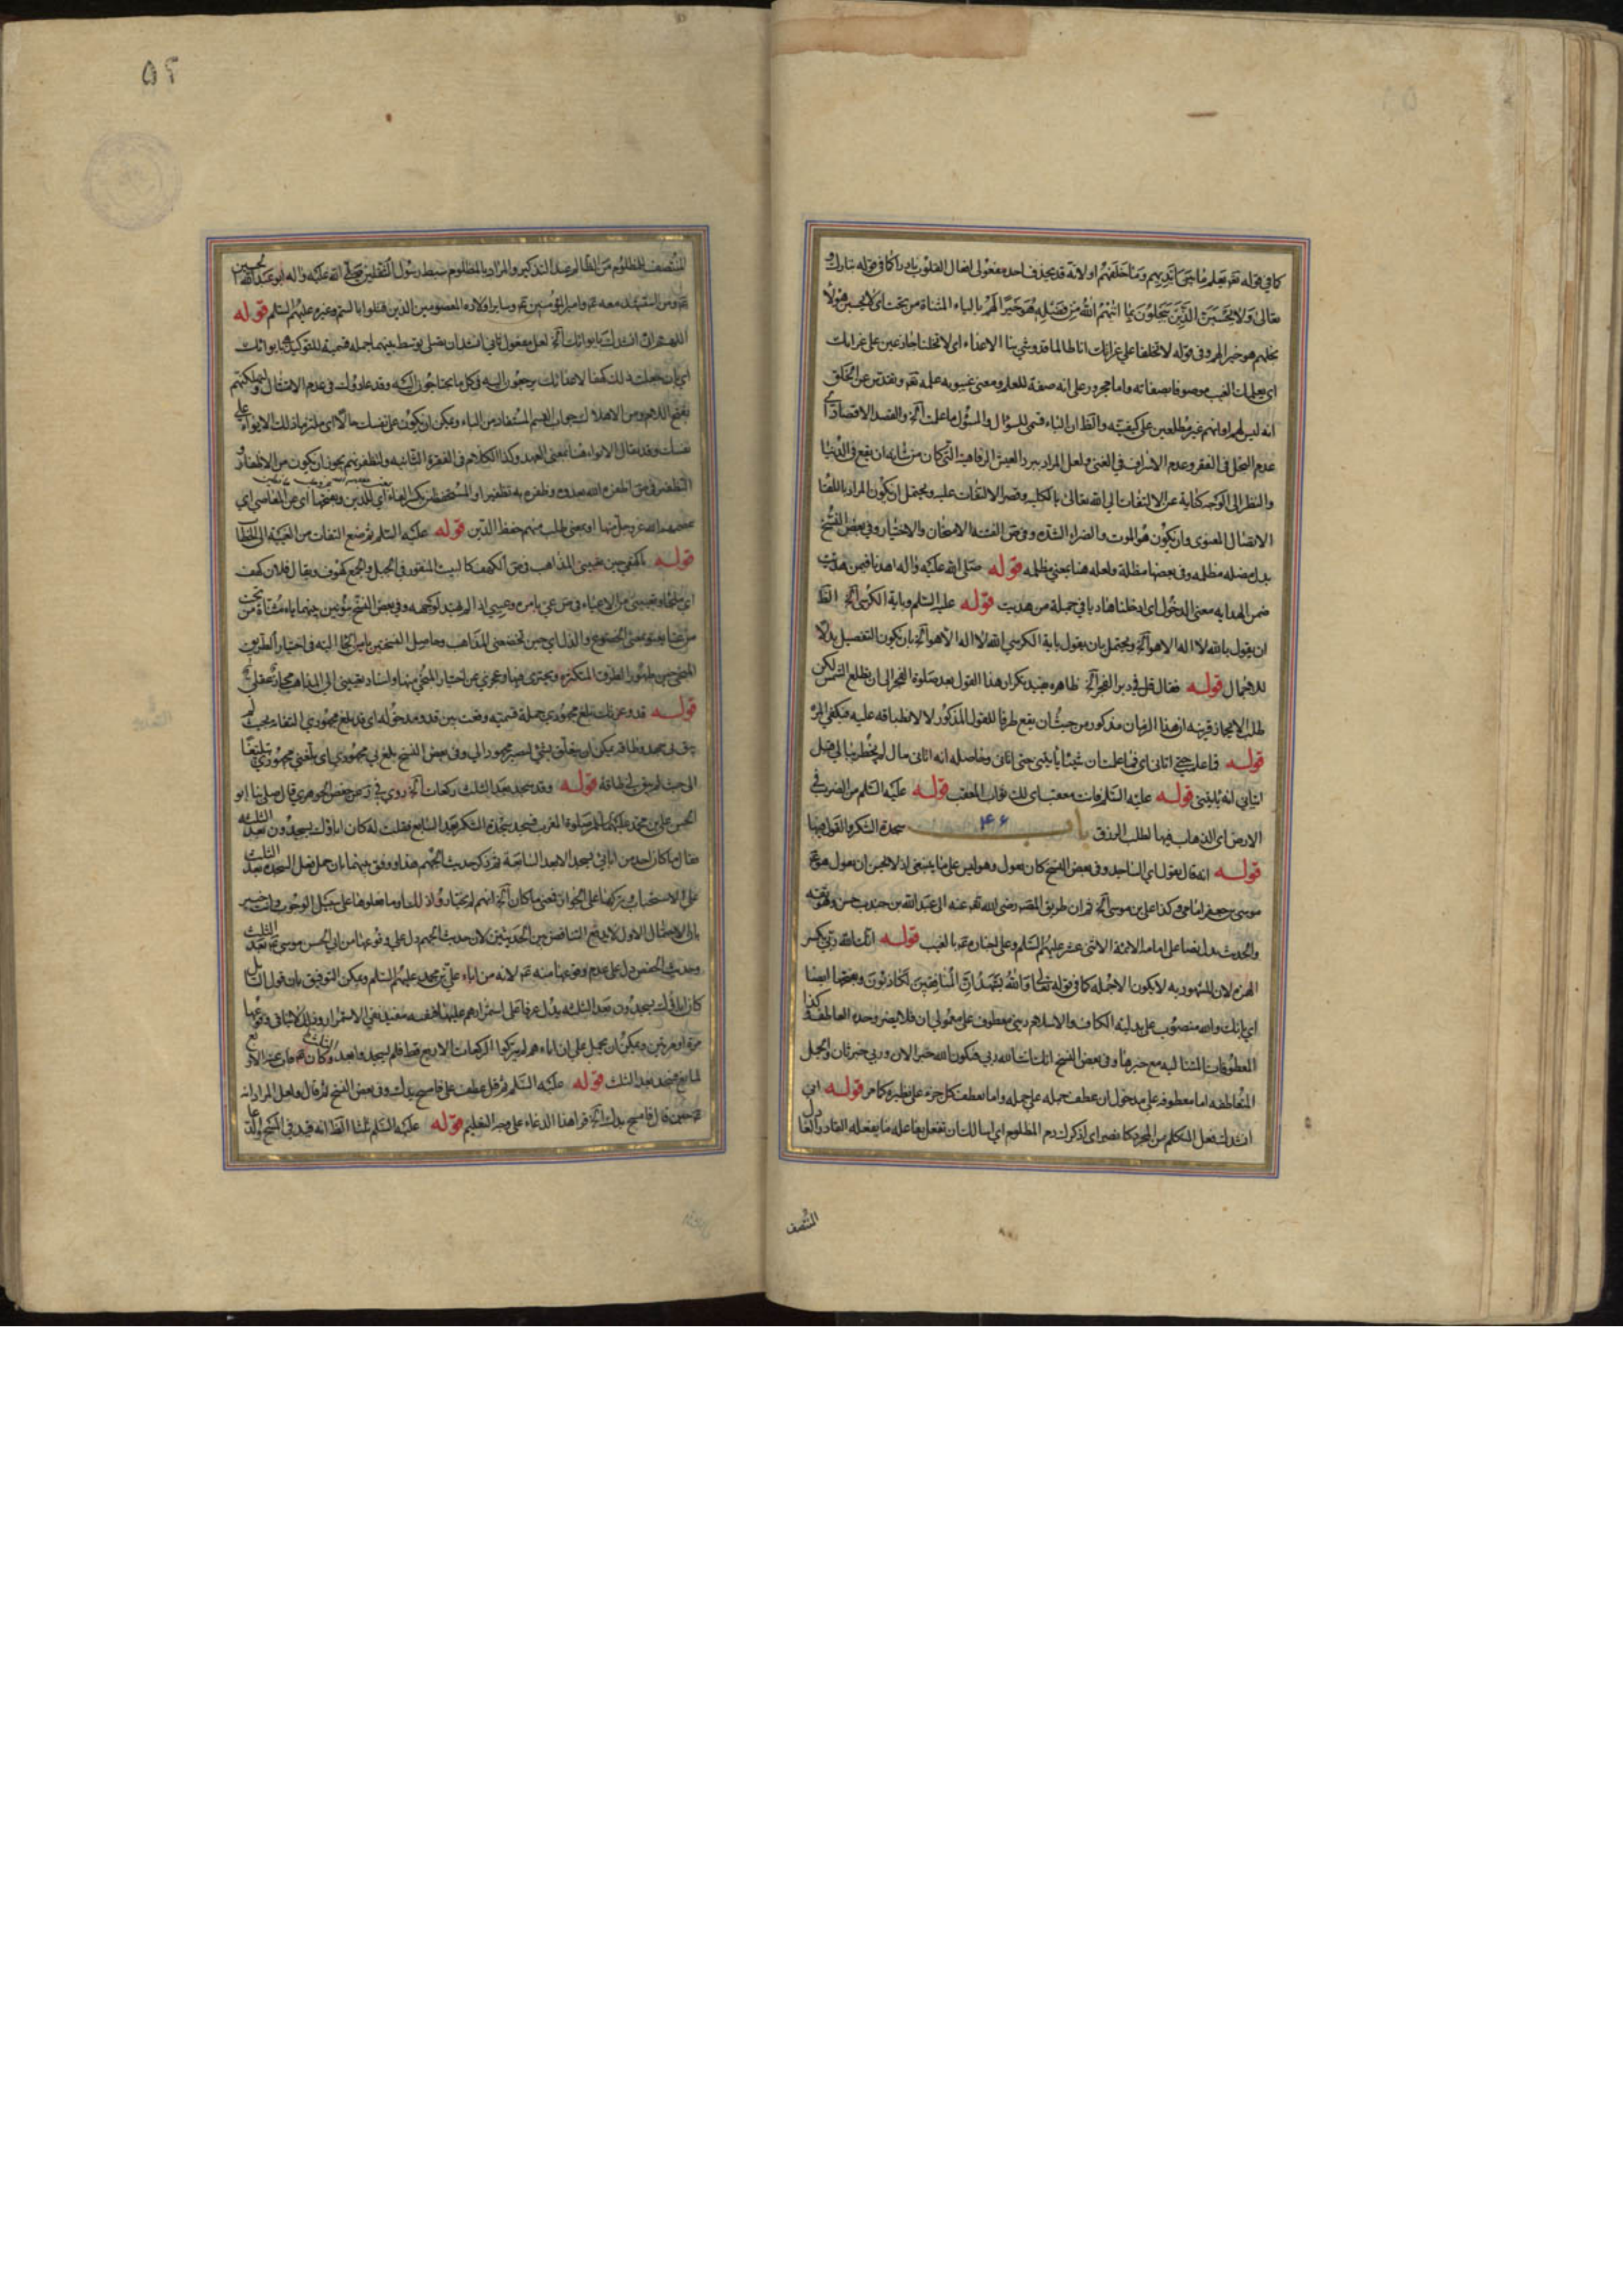 كما في قوله تعم يعلم ما بين ايديهم وما خلفهم او لانه قد يحذف احد مفعولي افعال القلوب نادرا كما في قوله تبارك و
تعالى ولا يحسبن الذين يبخلون بما اتيهم الله من فضله هو خيرا لهم بالياء المثناة من تحت اي لا يحسبن هؤلاء
بخلهم هو خيرا لهم وفي قوله لا تخلفنا على
اي بعلمك الغيب موصوفا بصفاته واما مجرور على انه صفة للعلم ومعنى غيبوبة علمه تعم وتقدس عن الخلق
انه ليس لهم او انهم غير مطلعين على كيفيته والظ ان الباء قسمي للسؤال والمسؤل ما علمت الخ والقصد الاقتصاد اي
عدم البخل في الفقر وعدم الاسراف في الغنى ولعل المراد ببرد العيش الرفاهية التي كان من شانه ان يقع في الدنيا
والنظر الى الوجه كناية عن الالتفات الى الله تعالى بالكلية وقصر الالتفات عليه ويحتمل ان يكون المراد باللقاء
الاتصال المعنوي وان يكون هو الموت والضراء الشدة وفي ص الفتنة الامتحان والاختبار وفي بعض النسخ
بدل مضلة مظلمة وفي بعضها مظلة ولعله هنا بمعنى مظلمة قوله صلى الله عليه واله اهدنا فيمن هديت
ضمن الهداية معنى الدخول اي ادخلنا هاديا في جملة من هديت قوله عليه السلم وباية الكرسي الخ الظ
ان يقول بالله لا اله الا هو الخ ويحتمل بان يقول باية الكرسي الله لا اله الا هو الخ بان يكون التفصيل بدلا
للاجمال قوله فقال قل في دبر الفجر الخ ظاهره يفيد تكرار هذا القول بعد صلوة الفجر الى ان يطلع الشمس لكن
طلب الايجاز قرينة ان هذا الزمان مذكور من حيث ان يقع ظرفا للقول المذكور لا لانطباقه عليه فيكفي المرة
قوله فما علمت حتى اتاني اي فما علمت ان شيئا ياتيني حتى اتاني وحاصله انه اتاني مال لم يخطر ببالي قبل
اتياني انه ياتيني قوله عليه السلم فانت معقب اي لك ثواب المعقب قوله عليه السلم من الضرب في
الارض اي الذهاب فيها لطلب الرزق باب ۴۶ سجدة الشكر والقول فيها
قوله انه قال يقول اي الساجد وفي بعض النسخ كان يقول وهو ليس على ما ينبغي اذ لا يحسن ان يقول هو تع
موسى بن جعفر امامي وكذا علي بن موسى الخ ثم ان طريق المصنف رضي الله تعم عنه الى عبد الله بن جندب حسن وهو ثقة
والحديث يدل نصا على امامة الائمة الاثني عشر عليهم السلم وعلى لعنان تعم بالغيب قوله انك انت الله ربي بكسر
الهمزة لان المشهود به لا يكون الا جملة كما في قوله تعالى والله يشهد ان المنافقين لكاذبون وبفتحها ايضا
اي بانك والله منصوب على بدلية الكاف والاسلام ديني معطوف على معمولي ان فلا يضر وحدة العاطف وكذا
المعطوفات التالية مع خبرها وفي بعض النسخ انك انت الله ربي فيكون الله خبرا لان وربي خبر ثان والجمل
المتعاطفة اما معطوفة على مدخول ان عطف جملة على جملة واما بعطف كل جزء على نظيره كما مر قوله اني
انشدك فعل المتكلم من المجرد كانصر اي اذكرك دم المظلوم اي اسالك ان تفعل بقاتله ما يفعله القادر العادل
المنتصف
۵۲
المنتصف للمظلوم من الظالم ضد التذكير والمراد بالمظلوم سبط رسول الثقلين صلى الله عليه واله ابو عبد الله الحسين
عم ومن استشهد معه عم وامير المؤمنين عم وساير اولاده المعصومين الذين قتلوا بالسم وغيره عليهم السلم قوله
اللهم اني انشدك بايوائك الخ لعل مفعول ثاني انشد ان تصلي توسط بينهما جملة قسمية للتوكيد بايوائك
اي بان جعلت ذلك كهفا لاعدائك يرجعون اليه في كل ما يحتاجون اليه وقد عادوك في عدم الامتثال لتهلكنهم
بفتح اللام ومن الاهلاك جواب القسم المستفاد من الباء ويمكن ان يكون على نفسك حالا اي ملتزما ذلك الايواء على
نفسك وقد يقال الايواء هنا بمعنى العهد وكذا الكلام في الفقرة الثانية ولتظفرنهم يجوز ان يكون من الاظفار و
التظفير في ص اظفره الله بعدوه وظفره به تظفيرا والمستحفظين بكسر الفاء اي للدين وبفتحها اي عن المعاصي اي
حفظهم الله عز وجل منها او بمعنى طلب منهم حفظ الدين قوله عليه السلم ثم ضع التفات من الغيبة الى الخطاب
قوله يا كهفي حين تعييني المذاهب في ص الكهف كالبيت المنقور في الجبل والجمع كهوف ويقال فلان كهف
اي ملجأ وتعييني من الاعياء في ص عي بامره وعيي اذا لم يهتد لوجهه وفي بعض النسخ بنونين بينهما ياء مثناة من تحت
من عنا يعنو بمعنى الخضوع والذل اي حين تخضعني المذاهب وحاصل النسختين يا من الجأ اليه في اختيار الطريق
المنجي حين ظهور الطرق المتكثرة وتحيري فيها وعجزي عن اختيار المنجي منها واسناد تعييني الى المذاهب مجاز عقلي
قوله قد وعزتك بلغ مجهودي جملة قسمية وقعت بين قد ومدخوله اي قد بلغ مجهودي النفاد بحيث لم
يبق لي جهد وطاقة يمكن ان يتعلق بشيء ليصير مجهودا لي وفي بعض النسخ بلغ بي مجهودي اي بلغني مجهودي تبليغا
الى حيث لم يبق لي طاقة قوله وقد يسجد بعد الثلث ركعات الخ روي في يب عن حفص الجوهري قال صلى بنا ابو
الحسن علي بن محمد عليهما السلم صلوة المغرب فسجد سجدة الشكر بعد السابعة فقلت له كان اباؤك يسجدون بعد الثلثة
فقال ما كان احد من ابائي يسجد الا بعد السابعة ثم ذكر حديث الجهم هذا ووفق بينهما بان حمل فعل السجدة بعد الثلث
على الاستحباب وتركها على الجواز فمعنى ما كان الخ انهم لم يختاروا ذلك
بان الاحتمال الاول لا يدفع التناقض بين الحديثين لان حديث الجهم دل على وقوعها من ابي الحسن موسى عم بعد الثلث
وحديث الحفص دل على عدم وقوعها منه عم لانه من اباء علي بن محمد عليهم السلم ويمكن التوفيق بان قول السائل
كان اباؤك يسجدون بعد الثلثة يدل عرفا على استمرارهم عليها فنفيه مفيد نفي الاستمرار وذلك لا ينافي وقوعها
مرة او مرتين ويمكن ان يحمل على ان اباءه لم يتركوا الركعات الاربع قط فلم يسجدوا بعد
قوله عليه السلم ثم قل عطف على فامسح يدك وفي بعض النسخ ثم قال ولعل المراد انه
حين قال فامسح يدك الخ قرا هذا الدعاء على وجه التعليم قوله عليه السلم ثلثا الظ انه قيد في المسح والدعاء